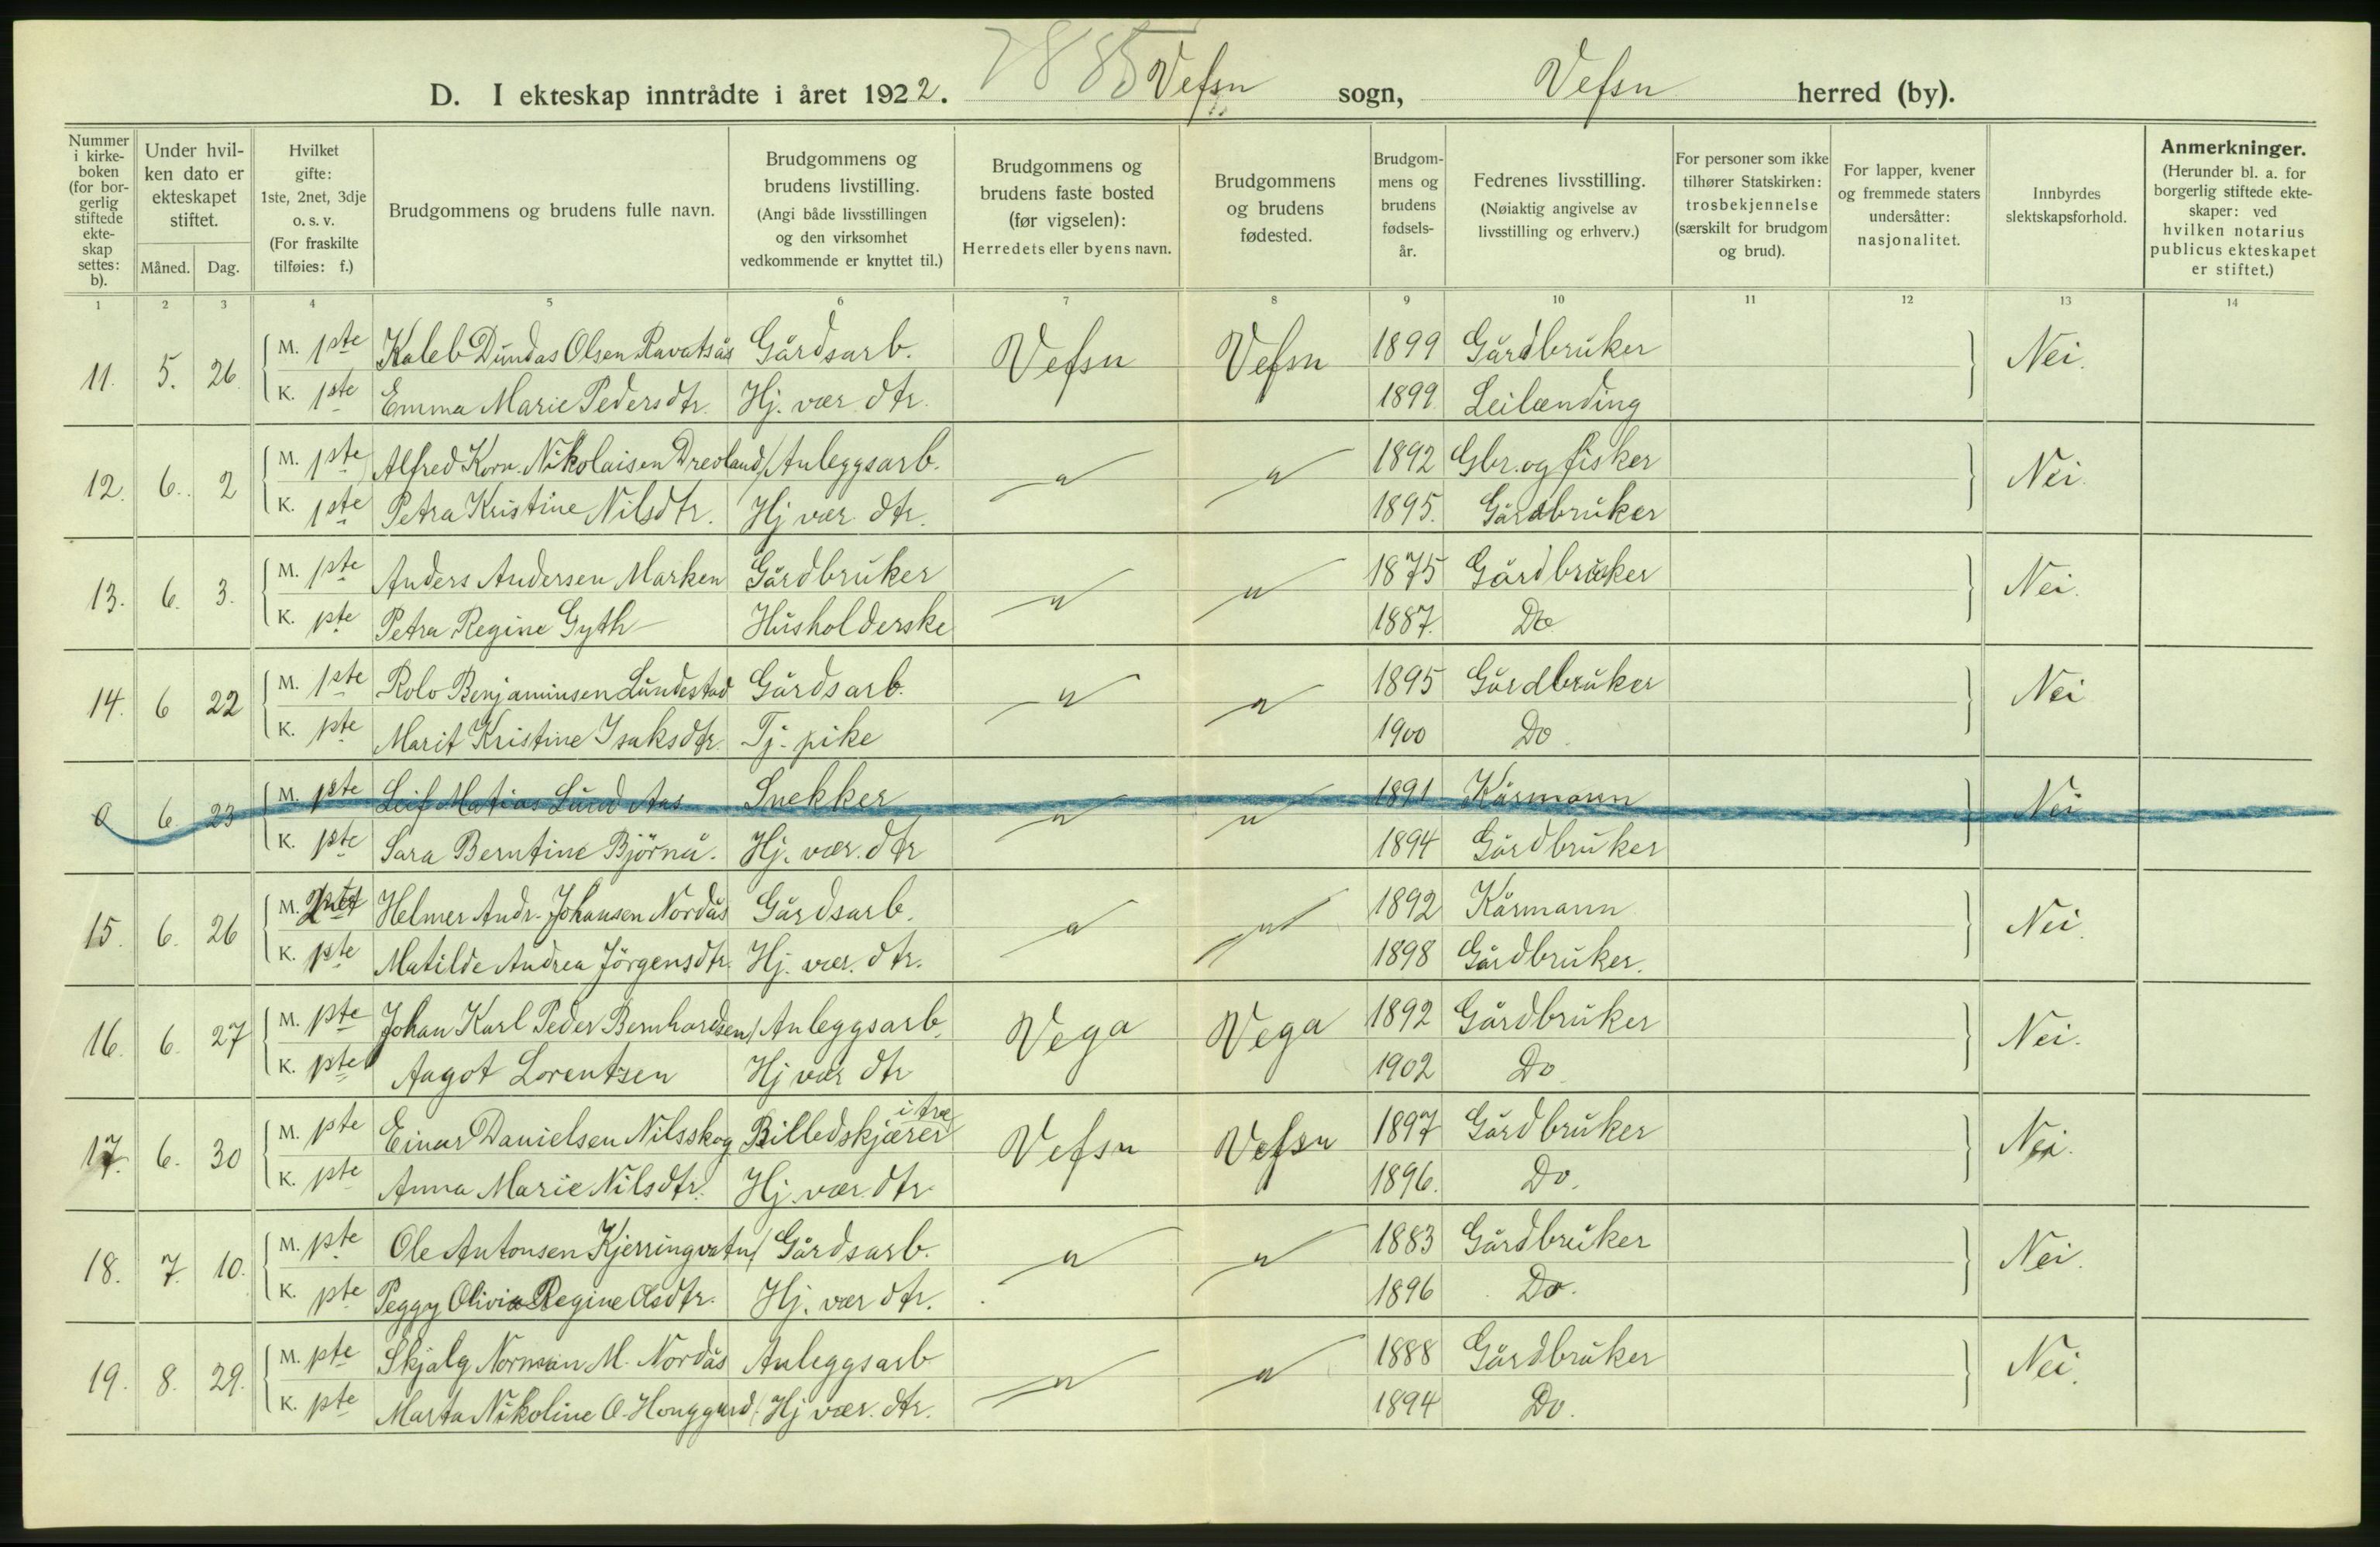 7885
D. I ekteskap inntrådte i året 1922. Vefsn sogn, Vefsn herred (by).
Nummer i kirkeboken (for borgerlig stiftede ekteskap settes: b).
Under hvilken dato er ekteskapet stiftet.
Måned. Dag.
Hvilket gifte: 1ste, 2net, 3dje o. s. v. (For fraskilte tilføies: f.)
Brudgommens og brudens fulle navn.
Brudgommens og brudens livstilling. (Angi både livsstillingen og den virksomhet vedkommende er knyttet til.)
Brudgommens og brudens faste bosted (før vigselen): Herredets eller byens navn.
Brudgommens og brudens fødested.
Brudgommens og brudens fødselsår.
Fedrenes livsstilling. (Nøiaktig angivelse av livsstilling og erhverv.)
For personer som ikke tilhører Statskirken: trosbekjennelse (særskilt for brudgom og brud).
For lapper, kvener og fremmede staters undersåtter: nasjonalitet.
Innbyrdes slektskapsforhold.
Anmerkninger. (Herunder bl. a. for borgerlig stiftede ekteskaper: ved hvilken notarius publicus ekteskapet er stiftet.)
1 2 3 4 5 6 7 8 9 10 11 12 13 14
11. 5. 26. M. 1ste Kaleb Dundas Olsen Ravatsås Gårdsarb. Vefsn Vefsn 1899 Gårdbruker Nei.
K. 1ste Emma Marie Pedersdtr. Hj. vær. dtr. 1899. Leilænding
12. 6. 2 M. 1ste Alfred Korn. Nikolaisen Drevland / Anleggsarb. " " 1892 Gbr. og fisker Nei.
K. 1ste Petra Kristine Nilsdtr. Hj. vær. dtr. 1895. Gårdbruker
13. 6. 3. M. 1ste Anders Andersen Marken Gårdbruker " " 1875 Gårdbruker Nei.
K. 1ste Petra Regine Gyth Husholderske 1887. Do
14. 6 22 M. 1ste Rolo Benjaminsen Lundestad Gårdsarb. " " 1895 Gårdbruker Nei
K. 1ste Marit Kristine Isaksdtr. Tj. pike 1900 Do.
0 6. 23 M. 1ste Leif Matias Lund Aas Snekker " " 1891 Kårmann Nei
K. 1ste Sara Berntine Björnå. Hj. vær. dtr 1894 Gårdbruker
15. 6. 26 M. 2net Helmer Andr. Johansen Nordås Gårdsarb. " " 1892 Kårmann Nei.
K. 1ste Matilde Andrea Jörgensdtr. Hj. vær. dtr. 1898 Gårdbruker.
16. 6. 27 M. 1ste Johan Karl Peder Bernhardsen / Anleggsarb. Vega Vega 1892 Gårdbruker Nei.
K. 1ste Aagot Lorentzen Hj vær dtr 1902 Do
17. 6. 30 M. 1ste Einar Danielsen Nilsskog Billedskjærer i træ Vefsn Vefsn 1897 Gårdbruker Nei.
K. 1ste Anna Marie Nilsdtr. Hj. vær. dtr. 1896. Do.
18. 7. 10. M. 1ste Ole Antonsen Kjerringvatn / Gårdsarb. " " 1883 Gårdbruker Nei.
K. 1ste Peggy Olivia Regine Olsdtr. Hj. vær dtr. 1896 Do.
19. 8. 29. M. 1ste Skjalg Norman M. Nordås Anleggsarb " " 1888 Gårdbruker Nei.
K. 1ste Marta Nikoline O. Honggard. / Hj vær. dtr. 1894 Do.